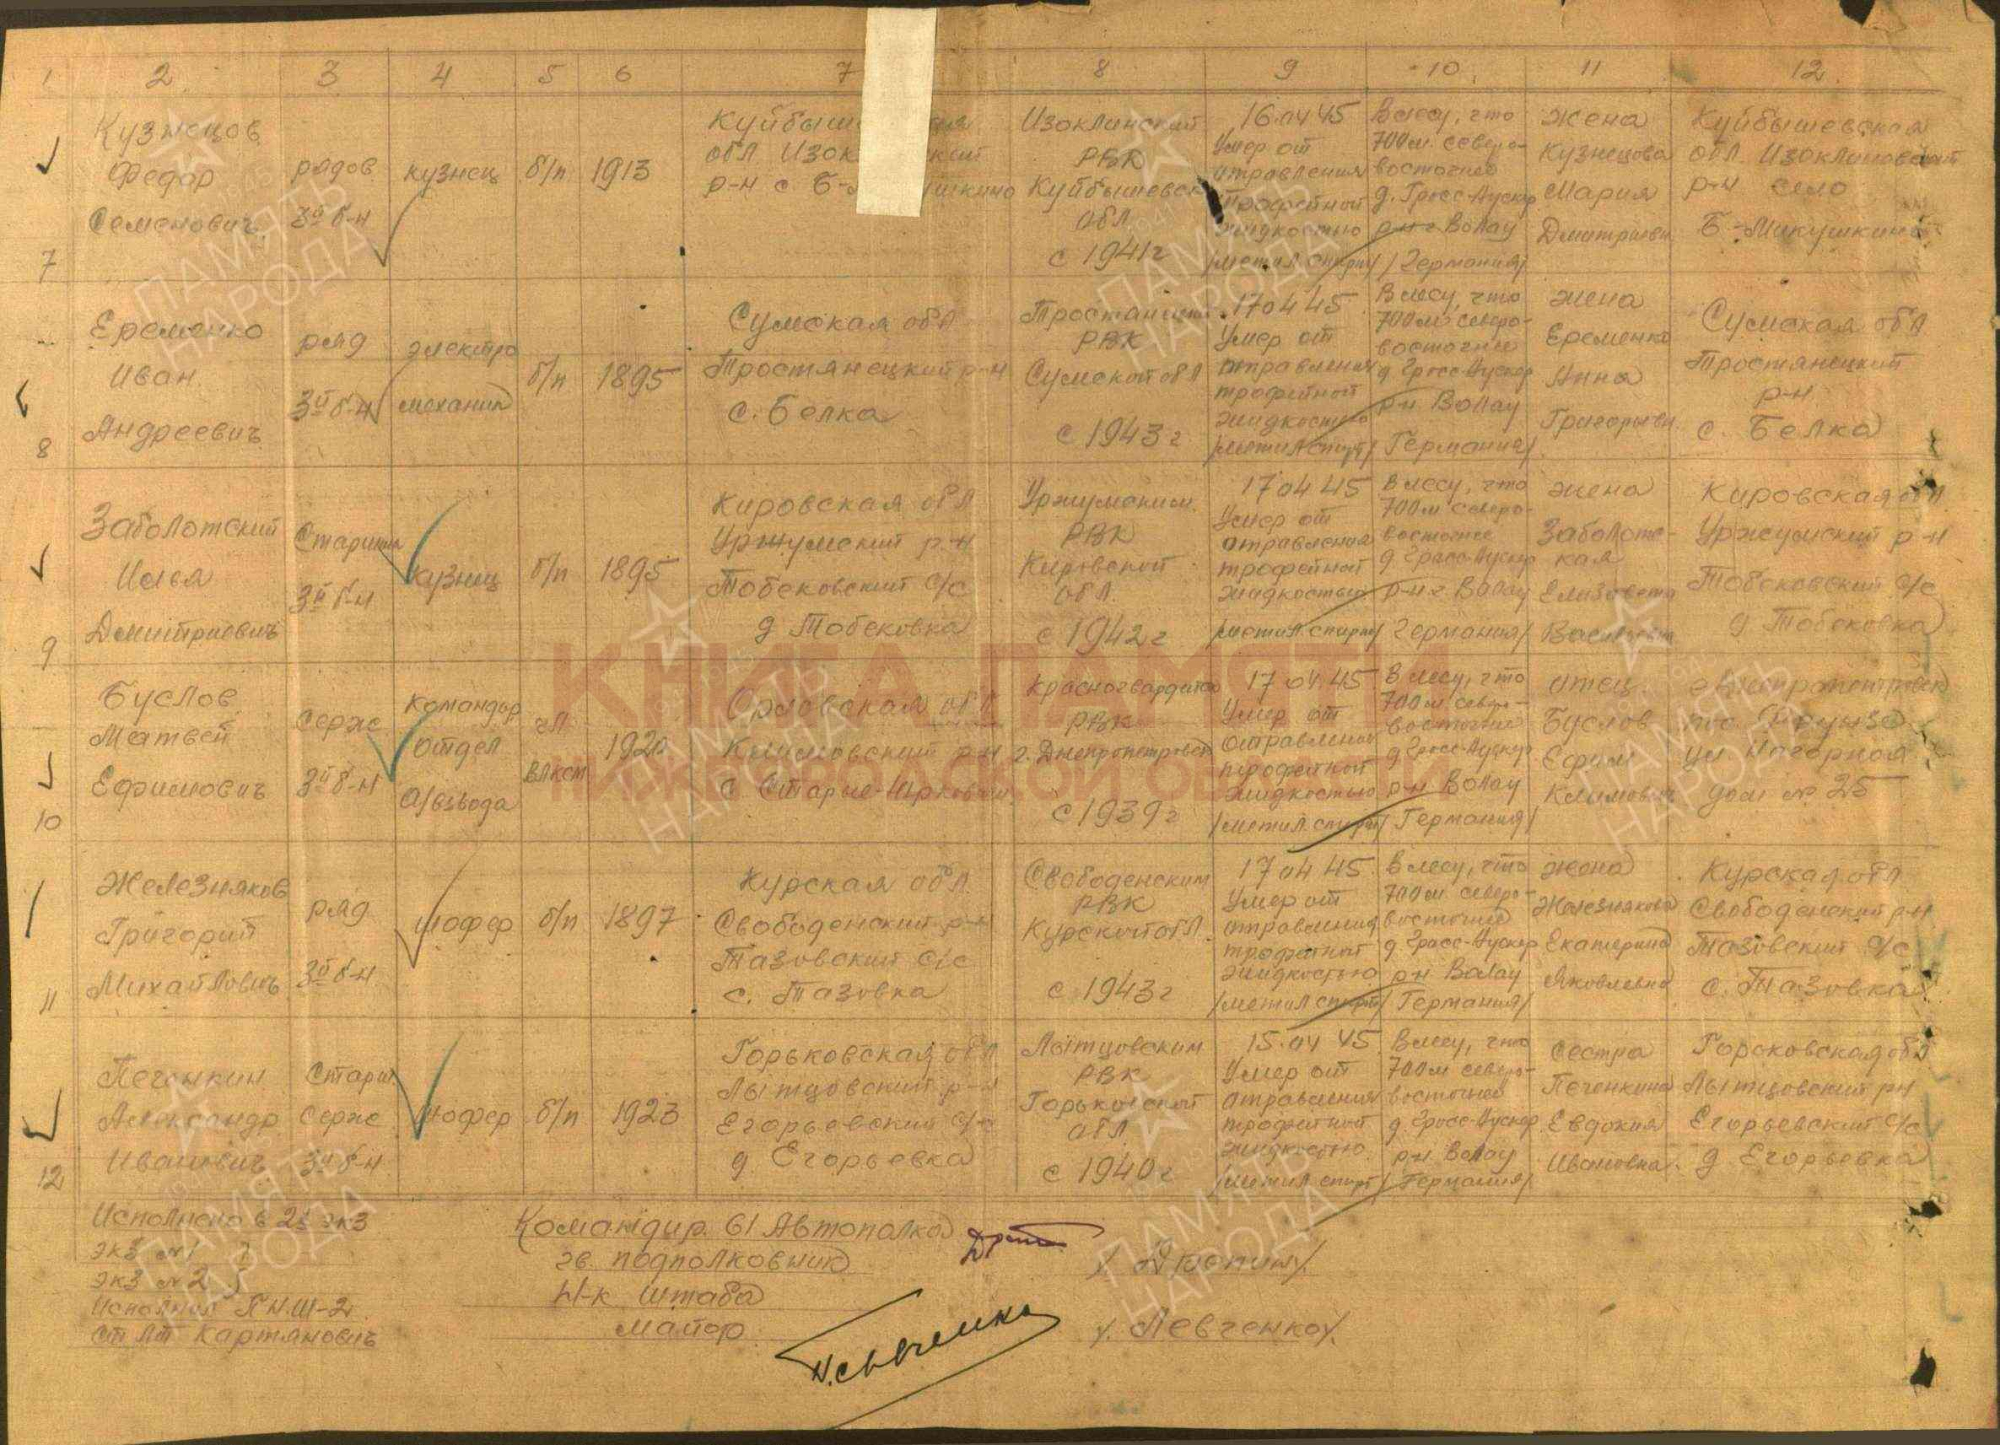 1 2 3 4 5 6 7 8 9 10 11 12
7
Кузнецов
Федор
Семенович
рядов
3й б-н
кузнец
б/п
1913
обл.
р-н с. Б-
Изоклинский
РВК
Куйбышевск
обл.
с 1941 г
16.04.45
Умер от
отравления
трофейной
жидкостью
/метил. спирт/
В лесу, что
700 м. северо-
восточнее
д. Гросс-Аускер
р-н г. Волау
/Германия/
жена
Кузнецова
Мария
Дмитриевн
Куйбышевская
обл. Изоклиновский
р-н село
Б.-Микушкино
8
Еременко
Иван
Андреевич
ряд
3й б-н
электро
механик
б/п
1895
Сумская обл
Тростянецкий р-н
с. Белка
РВК
Сумской обл
с 1943 г
17.04.45
Умер от
отравления
трофейной
жидкостью
/метил спирт/
В лесу, что
700 м северо-
восточнее
д. Гросс-Аускер
р-н Волау
/Германия/
жена
Еременко
Анна
Григорьевн.
Сумская обл
Тростянецкий
р-н
с. Белка
9
Заболотский
Илья
Дмитриевич
Старшин
3й б-н
кузнец
б/п
1895
Кировская обл
Уржумский р-н
Тобековский с/с
д Тобековка
Уржумским
РВК
Кировской
обл.
с 1942 г
17 04 45
Умер от
отравления
трофейной
жидкостью
/метил. спирт/
В лесу, что
700 м северо-
восточнее
д Гросс-Аускер
р-н г Волау
/Германия/
жена
Заболотс-
кая
Елизавета
Васильевн
Кировская обл
Уржумский р-н
Тобековский с/с
д Тобековка
10
Буслов
Матвей
Ефимович
Серж
3й б-н
Командир
отдел
А/взвода
чл
ВЛКСМ
Орловская обл
Климовский р-н
с Старые-Юрковичи
Красногвардейск
РВК
г. Днепропетровск
с 1939 г
17 04.45
Умер от
отравления
трофейной
жидкостью
/метил. спирт/
В лесу, что
700 м северо-
восточнее
д Гросс-Аускер
р-н Волау
/Германия/
отец
Буслов
Ефим
Климович
г Днепропетровск
пос. Фрунзе
ул. Нагорная
дом № 25
11
Железняков
Григорий
Михайлович
ряд
3й б-н
шофер
б/п
1897
Курская обл.
Свободенский р-н
Тазовский с/с
с. Тазовка
Свободенским
РВК
Курской обл.
с 1943 г
17 04 45
Умер от
отравления
трофейной
жидкостью
/метил спирт/
В лесу, что
700 м северо-
восточнее
д Гросс-Аускер
р-н Волау
/Германия/
жена
Железнякова
Екатерина
Яковлевна
Курская обл
Свободенский р-н
Тазовский с/с
с. Тазовка
12
Печенкин
Александр
Иванович
Старш
Серж
3й б-н
шофер
б/п
1923
Горьковская обл
Лытцовский р-н
Егорьевский с/с
д. Егорьевка
Лытцовским
РВК
Горьковской
обл
с 1940 г
15.04 45
Умер от
отравления
трофейной
жидкостью
/метил спирт/
В лесу, что
700 м северо-
восточнее
д. Гросс-Аускер
р-н Волау
/Германия/
сестра
Печенкина
Евдокия
Ивановна
Горьковская обл
Лытцовский р-н
Егорьевский с/с
д Егорьевка
Исполнено в 2х экз
экз №1
экз №2
Исполнил ПНШ-2
ст лт Картянович
Командир 61 Автополка
гв. подполковник
Н-к штаба
майор
Левченко
/Левченко/
КНИГА ПАМЯТИ
НИЖЕГОРОДСКОЙ ОБЛАСТИ
ПАМЯТЬ
НАРОДА